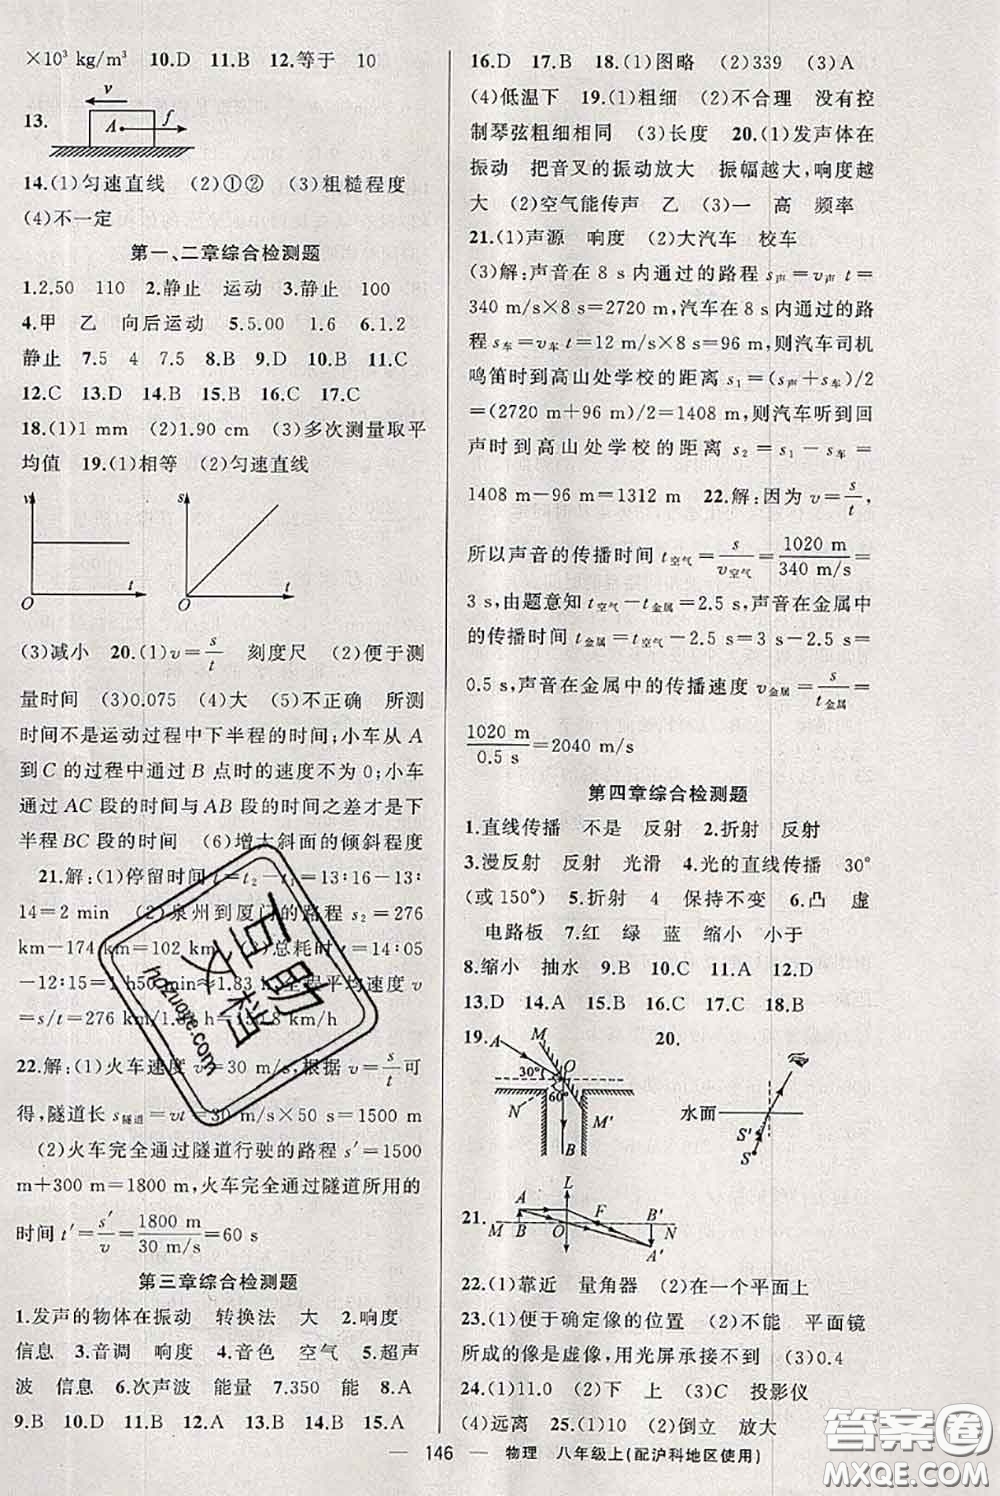 ×10³ kg/m³ 10.D 11.B 12.等于 10
13.
v
A
f
14.(1)匀速直线 (2)①② (3)粗糙程度
(4)不一定
第一、二章综合检测题
1.2.50 110 2.静止 运动 3.静止 100
4.甲 乙 向后运动 5.5.00 1.6 6.1.2
静止 7.5 4 7.5 8.B 9.D 10.B 11.C
12.C 13.D 14.B 15.B 16.C 17.C
18.(1)1 mm (2)1.90 cm (3)多次测量取平
均值 19.(1)相等 (2)匀速直线
v
O
t
s
O
t
(3)减小 20.(1)v=s/t 刻度尺 (2)便于测
量时间 (3)0.075 (4)大 (5)不正确 所测
时间不是运动过程中下半程的时间;小车从 A
到 C 的过程中通过 B 点时的速度不为 0;小车
通过 AC 段的时间与 AB 段的时间之差才是下
半程 BC 段的时间 (6)增大斜面的倾斜程度
21.解:(1)停留时间 t=t₂-t₁=13:16-13:
14=2 min (2)泉州到厦门的路程 s₂=276
km-174 km=102 km (3)总耗时 t=14:05
-12:15=1 h50 min≈1.83 h,全程平均速度 v
=s/t=276 km/1.83 h=150.8 km/h
22.解:(1)火车速度 v=30 m/s,根据 v=s/t可
得,隧道长 s隧道=vt=30 m/s×50 s=1500 m
(2)火车完全通过隧道行驶的路程 s′=1500
m+300 m=1800 m,火车完全通过隧道所用的
时间 t′=s′/v=1800 m/30 m/s=60 s
第三章综合检测题
1.发声的物体在振动 转换法 大 2.响度
信息 3.音调 响度 4.音色 空气 5.超声
波 信息 6.次声波 能量 7.350 能 8.A
9.B 10.D 11.D 12.A 13.A 14.B 15.A
16.D 17.B 18.(1)图略 (2)339 (3)A
(4)低温下 19.(1)粗细 (2)不合理 没有控
制琴弦粗细相同 (3)长度 20.(1)发声体在
振动 把音叉的振动放大 振幅越大,响度越
大 (2)空气能传声 乙 (3)一 高 频率
21.(1)声源 响度 (2)大汽车 校车
(3)解:声音在 8 s 内通过的路程 s声=v声 t=
340 m/s×8 s=2720 m,汽车在 8 s 内通过的路
程 s车=v车 t=12 m/s×8 s=96 m,则汽车司机
鸣笛时到高山处学校的距离 s₁=(s声+s车)/2=
(2720 m+96 m)/2=1408 m,则汽车听到回
声时到高山处学校的距离 s₂=s₁-s车=
1408 m-96 m=1312 m 22.解:因为 v=s/t,
所以声音的传播时间 t空气=s/v空气=1020 m/340 m/s=
3 s,由题意知 t空气-t金属=2.5 s,声音在金属中
的传播时间 t金属=t空气-2.5 s=3 s-2.5 s=
0.5 s,声音在金属中的传播速度 v金属=s/t金属=
1020 m/0.5 s=2040 m/s
第四章综合检测题
1.直线传播 不是 反射 2.折射 反射
3.漫反射 反射 光滑 4.光的直线传播 30°
(或 150°) 5.折射 4 保持不变 6.凸 虚
电路板 7.红 绿 蓝 缩小 小于
8.缩小 抽水 9.B 10.C 11.A 12.D
13.D 14.A 15.B 16.C 17.C 18.B
19.
A
M
O
30°
60°
N
M′
B
20.
水面
S′
S
21.
L
A
F
B′
M
B
O
N
A′
22.(1)靠近 量角器 (2)在一个平面上
23.(1)便于确定像的位置 (2)不能 平面镜
所成的像是虚像,用光屏承接不到 (3)0.4
24.(1)11.0 (2)下 上 (3)C 投影仪
(4)远离 25.(1)10 (2)倒立 放大
— 146 — 物理 八年级上(配沪科地区使用)
互助
文档
hozuoge.com
答案圈
MXQE.COM